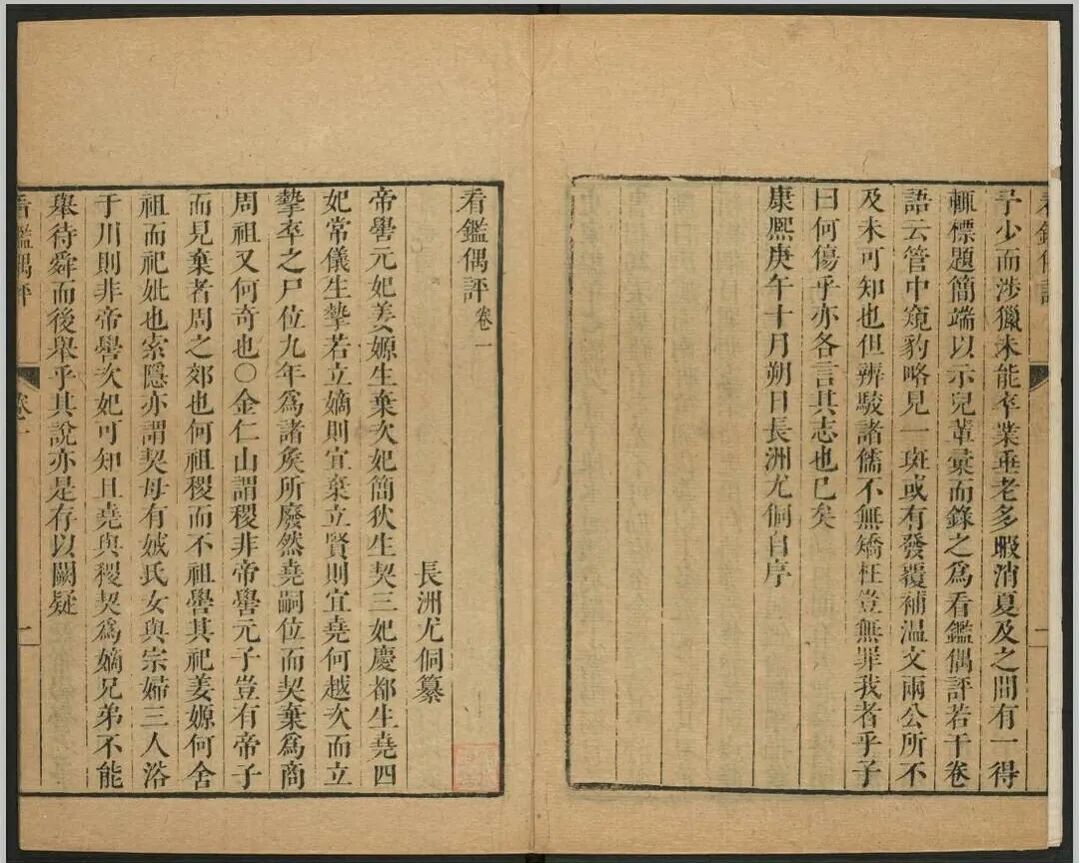 看鑑偶評
一
予少而涉獵未能卒業垂老多暇消夏及之間有一得
輒標題簡端以示兒輩彙而錄之爲看鑑偶評若干卷
語云管中窺豹略見一斑或有發覆補温文兩公所不
及未可知也但辨駁諸儒不無矯枉豈無罪我者乎子
曰何傷乎亦各言其志也已矣
康熙庚午十月朔日長洲尤侗自序
看鑑偶評卷一
長洲尤侗纂
帝嚳元妃姜嫄生棄次妃簡狄生契三妃慶都生堯四
妃常儀生摯若立嫡則宜棄立賢則宜堯何越次而立
摯卒之尸位九年爲諸矦所廢然堯嗣位而契棄爲商
周祖又何奇也〇金仁山謂稷非帝嚳元子豈有帝子
而見棄者周之郊也何祖稷而不祖嚳其祀姜嫄何舍
祖而祀妣也索隱亦謂契母有娀氏女與宗婦三人浴
于川則非帝嚳次妃可知且堯與稷契爲嫡兄弟不能
舉待舜而後舉乎其說亦是存以闕疑
看鑑偶評
卷一
一